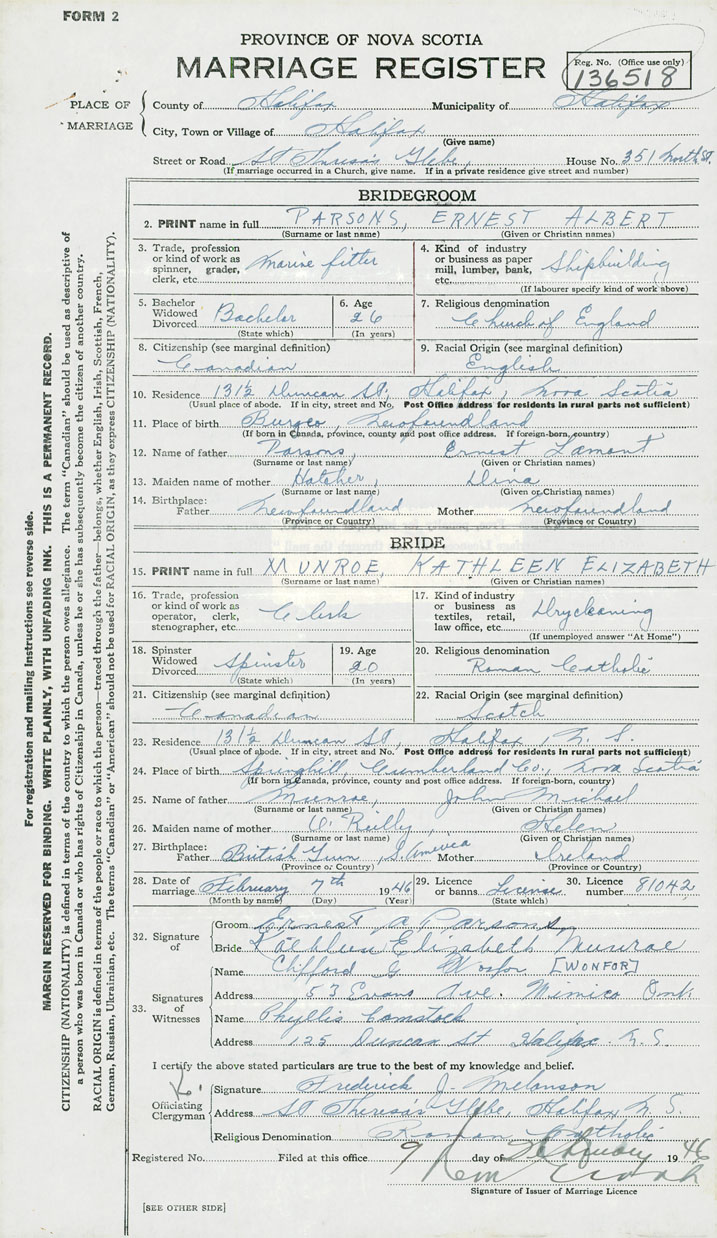 FORM 2
PROVINCE OF NOVA SCOTIA
MARRIAGE REGISTER
Reg. No. (Office use only)
136518
PLACE OF MARRIAGE
County of Halifax Municipality of Halifax
City, Town or Village of Halifax
(Give name)
Street or Road St Theresa's Glebe, House No. 351 North St.
(If marriage occurred in a Church, give name. If in a private residence give street and number)
BRIDEGROOM
2. PRINT name in full PARSONS, ERNEST ALBERT
(Surname or last name) (Given or Christian names)
3. Trade, profession or kind of work as spinner, grader, clerk, etc. Marine fitter
4. Kind of industry or business as paper mill, lumber, bank, etc. Shipbuilding
(If labourer specify kind of work above)
5. Bachelor Widowed Divorced Bachelor
(State which)
6. Age 26
(In years)
7. Religious denomination
Church of England
8. Citizenship (see marginal definition)
Canadian
9. Racial Origin (see marginal definition)
English
10. Residence 131½ Duncan St, Halifax, Nova Scotia
(Usual place of abode. If in city, street and No. Post Office address for residents in rural parts not sufficient)
11. Place of birth Burgeo, Newfoundland
(If born in Canada, province, county and post office address. If foreign-born, country)
12. Name of father Parsons, Ernest Lamont
(Surname or last name) (Given or Christian names)
13. Maiden name of mother Hatcher, Dina
(Surname or last name) (Given or Christian names)
14. Birthplace: Father Newfoundland Mother Newfoundland
(Province or Country) (Province or Country)
BRIDE
15. PRINT name in full MUNROE, KATHLEEN ELIZABETH
(Surname or last name) (Given or Christian names)
16. Trade, profession or kind of work as operator, clerk, stenographer, etc. Clerk
17. Kind of industry or business as textiles, retail, law office, etc. Drycleaning
(If unemployed answer "At Home")
18. Spinster Widowed Divorced Spinster
(State which)
19. Age 20
(In years)
20. Religious denomination
Roman Catholic
21. Citizenship (see marginal definition)
Canadian
22. Racial Origin (see marginal definition)
Scotch
23. Residence 131½ Duncan St, Halifax, N. S.
(Usual place of abode. If in city, street and No. Post Office address for residents in rural parts not sufficient)
24. Place of birth Springhill, Cumberland Co., Nova Scotia
(If born in Canada, province, county and post office address. If foreign-born, country)
25. Name of father Munroe, John Michael
(Surname or last name) (Given or Christian names)
26. Maiden name of mother O'Reilly, Helen
(Surname or last name) (Given or Christian names)
27. Birthplace: Father British Guin, S. America Mother Ireland
(Province or Country) (Province or Country)
28. Date of marriage February 7th 1946
(Month by name) (Day) (Year)
29. Licence or banns License
(State which)
30. Licence number 81042
32. Signature of
Groom Ernest A Parsons
Bride Kathleen Elizabeth Munroe
33. Signatures of Witnesses
Name Clifford G Wonfor [WONFOR]
Address 53 Evans Ave. Mimico Ont.
Name Phyllis Comstock
Address 125 Duncan St Halifax N.S.
I certify the above stated particulars are true to the best of my knowledge and belief.
Officiating Clergyman
Signature Frederick J. Melanson
Address St Theresa's Glebe, Halifax N.S.
Religious Denomination Roman Catholic
Registered No. Filed at this office 9 day of February 1946
Signature of Issuer of Marriage Licence
[SEE OTHER SIDE]
For registration and mailing instructions see reverse side.
MARGIN RESERVED FOR BINDING. WRITE PLAINLY, WITH UNFADING INK. THIS IS A PERMANENT RECORD.
CITIZENSHIP (NATIONALITY) is defined in terms of the country to which the person owes allegiance. The term "Canadian" should be used as descriptive of
a person who was born in Canada or who has rights of Citizenship in Canada, unless he or she has subsequently become the citizen of another country.
RACIAL ORIGIN is defined in terms of the people or race to which the person—traced through the father—belongs, whether English, Irish, Scottish, French,
German, Russian, Ukrainian, etc. The terms "Canadian" or "American" should not be used for RACIAL ORIGIN, as they express CITIZENSHIP (NATIONALITY).